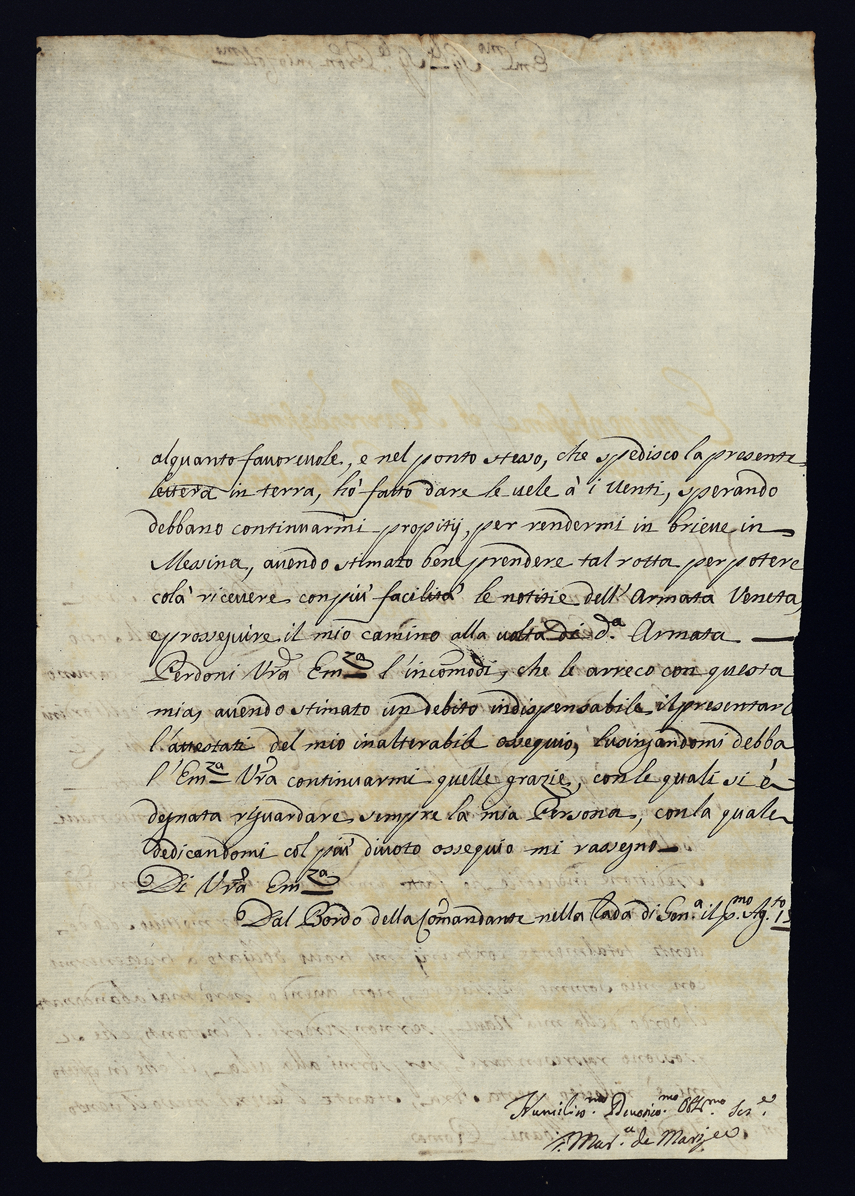 alquanto favorevole, e nel ponto stesso, che spedisco la presente
lettera in terra, hò fatto dare le vele à i Venti, sperando
debbano continuarmi propitij, per rendermi in brieve in
Messina, avendo stimato bene prendere tal rotta per potere
colà ricevere con più facilità le notitie dell'Armata Veneta,
e prosseguire il mio camino alla volta di d.ª Armata
Perdoni Vrã Em.za l'incomodi, che le arreco con questa
mia, avendo stimato un debito indispensabile il presentarl
l'attestati del mio inalterabile ossequio, lusingandomi debba
l'Em.za Vrã continuarmi quelle grazie, con le quali si è
degnata riguardare sempre la mia Persona, con la quale
dedicandomi col più divoto ossequio mi rassegno
Di Vrã Em.za
Dal Bordo della Comandante nella Rada di il p.mo Ag.to
Humiliss.mo Devotiss.mo Obb.mo Ser.e